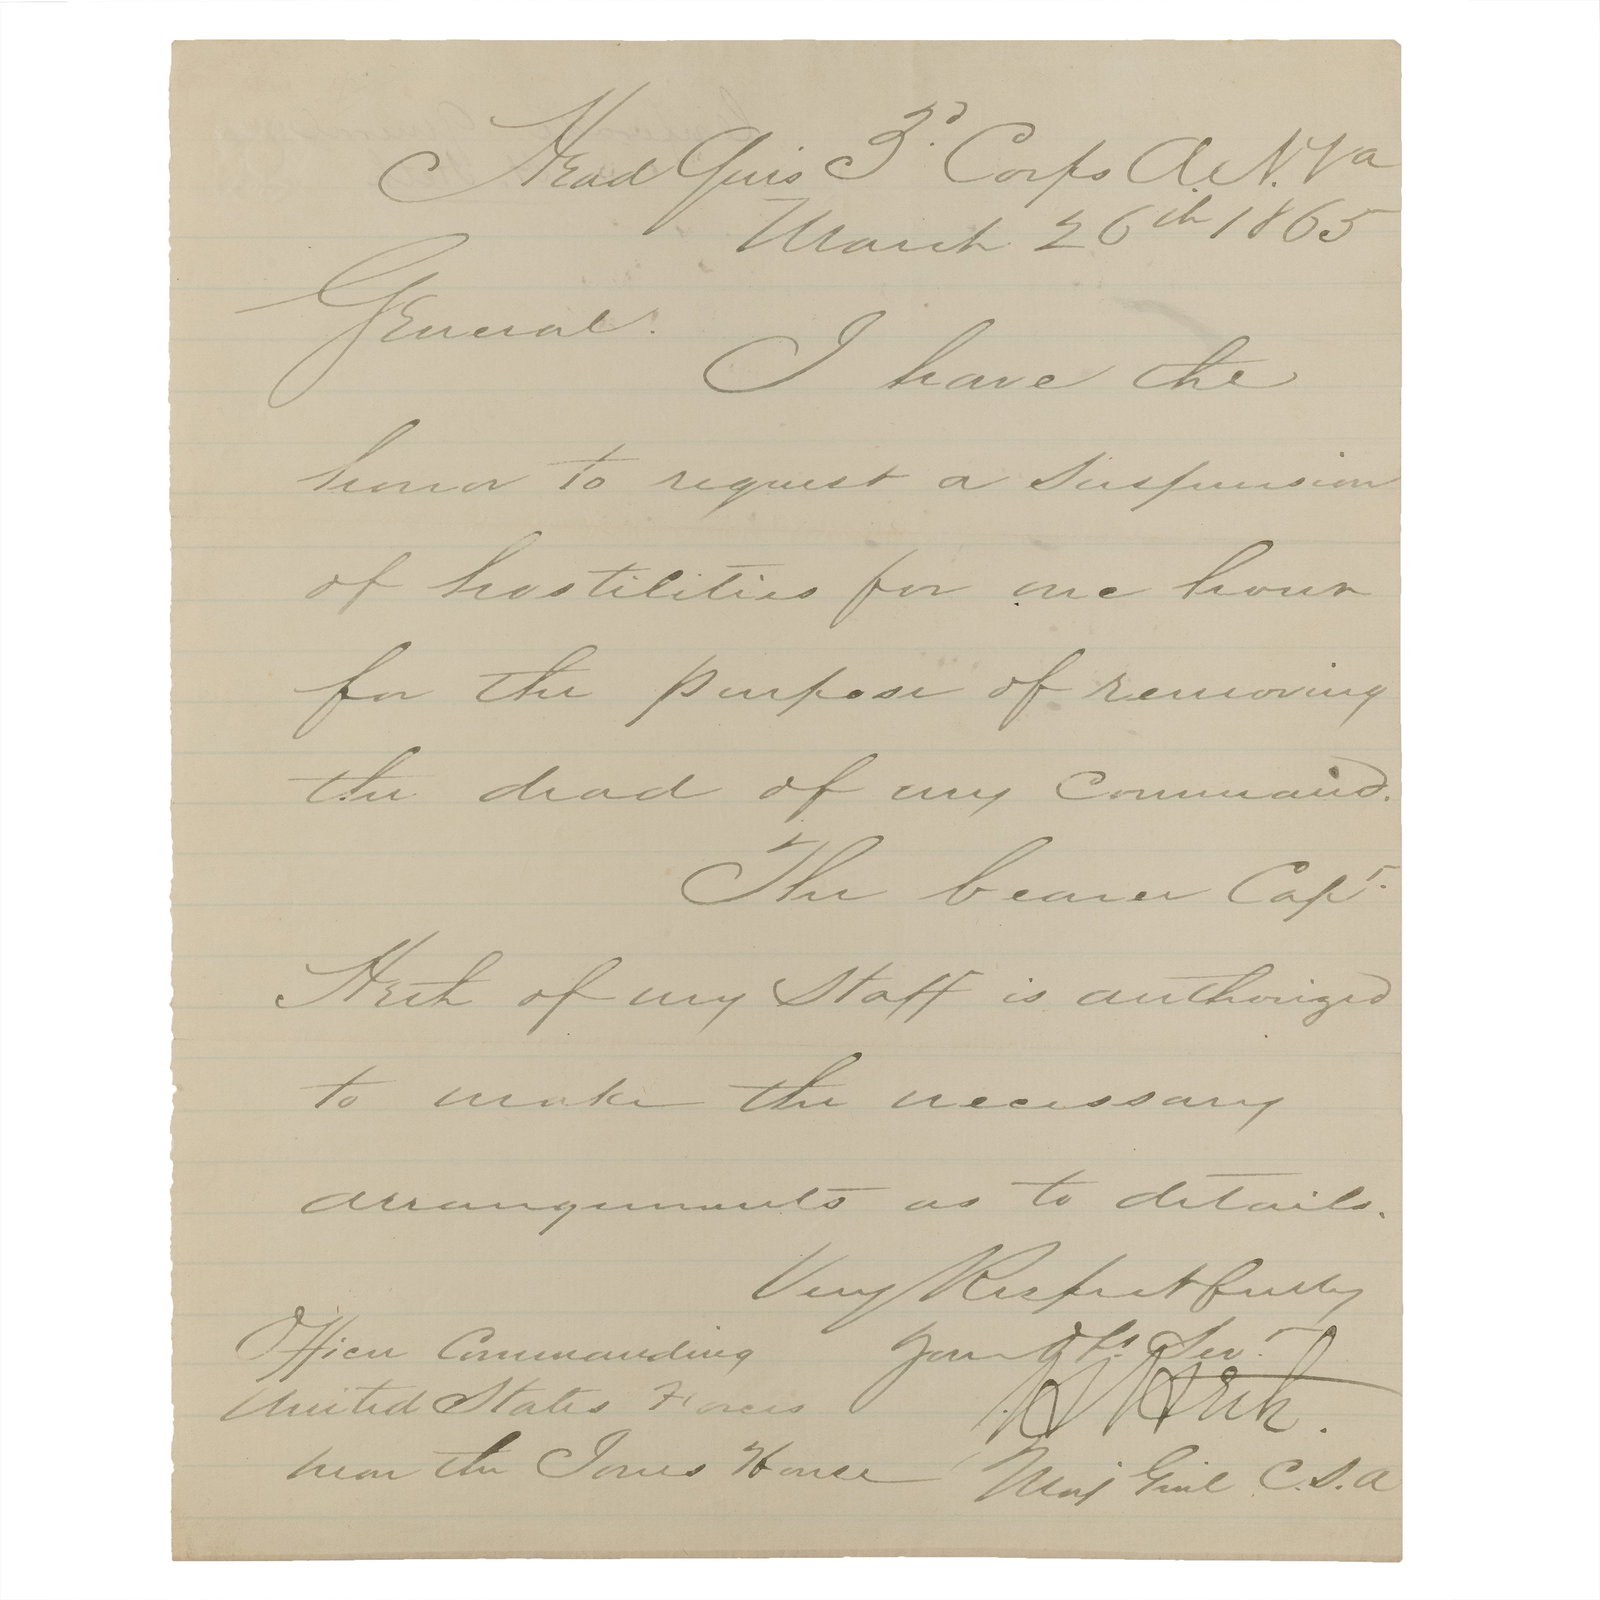 Head Qrs 3d. Corps A. N. Va
March 26th 1865
General.
I have the
honor to request a suspension
of hostilities for one hour
for the purpose of removing
the dead of my Command.
The bearer Capt.
Heth of my Staff is authorized
to make the necessary
arrangements as to details.
Very Respectfully
Your Obt. Servt.
H Heth.
Maj Genl C.S.A
Officer Commanding
United States Forces
near the Jones House